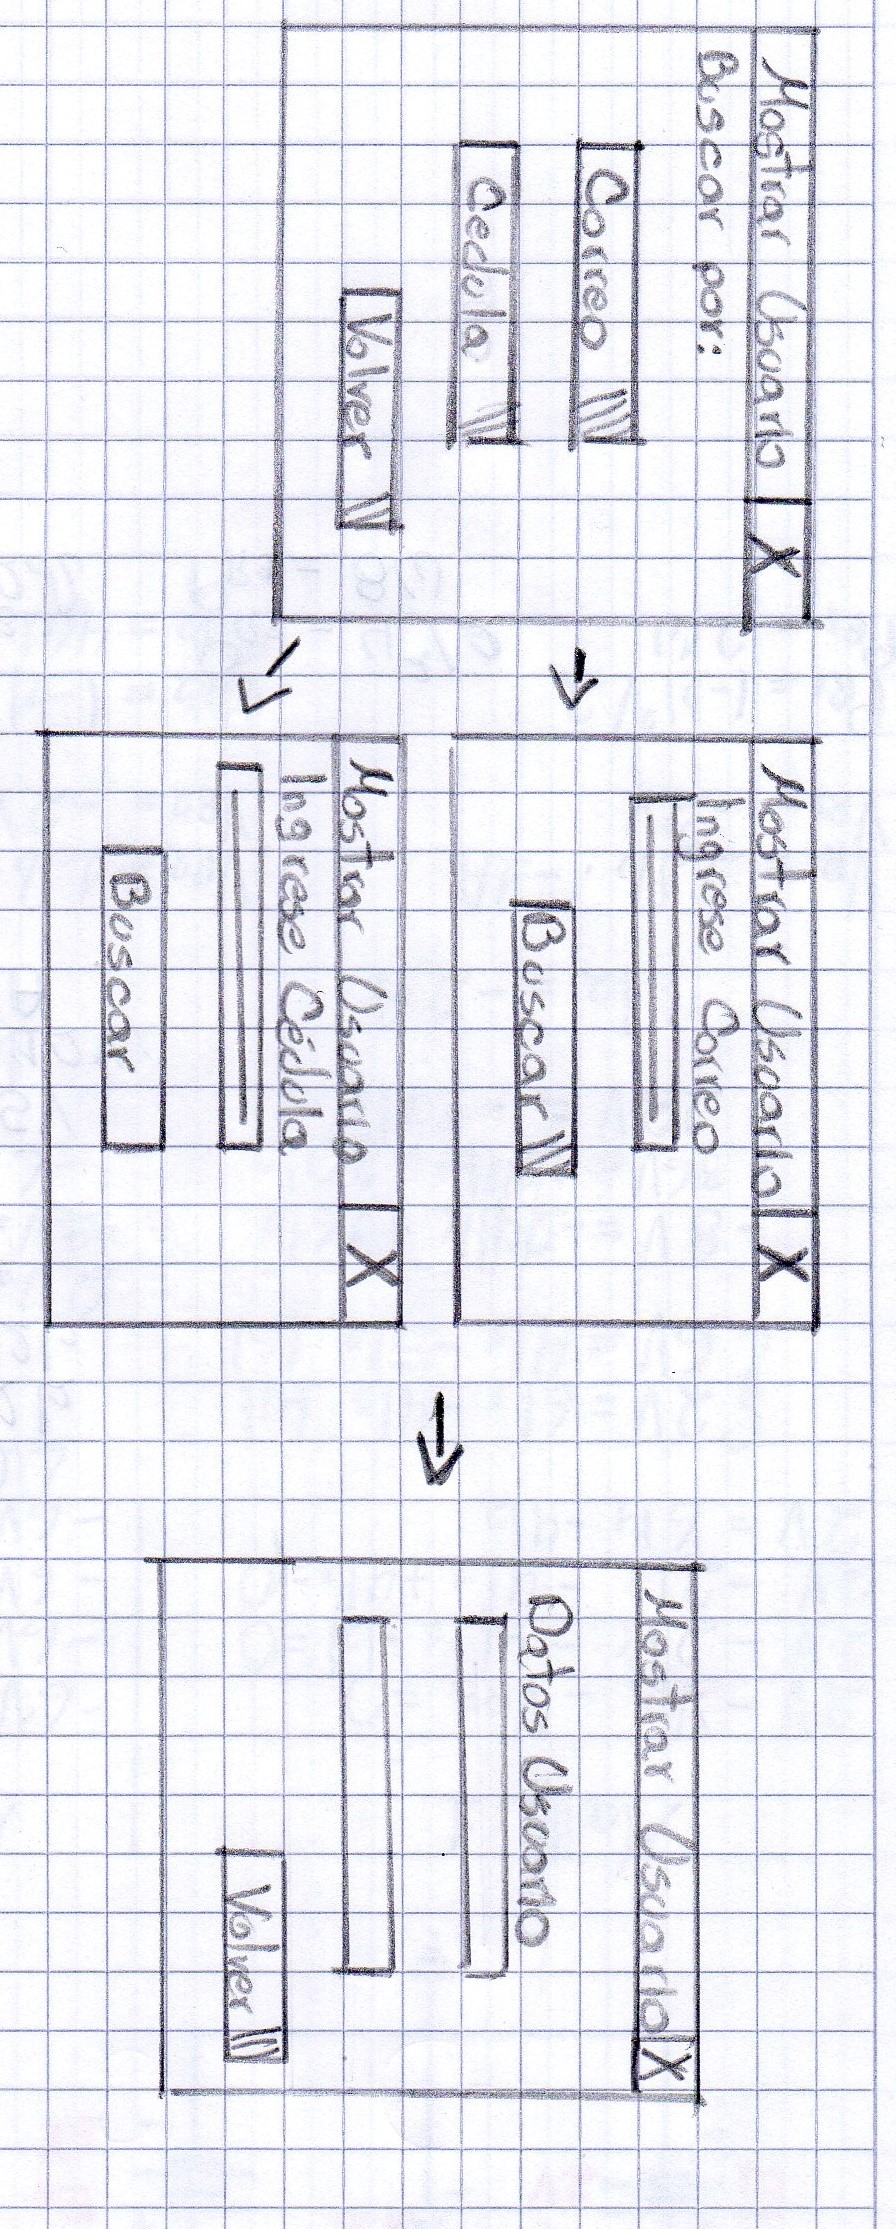 Mostrar Usuario X
Buscar por:
Correo
Cedula
Volver
Mostrar Usuario X
Ingrese Correo
Buscar
Mostrar Usuario X
Ingrese Cédula
Buscar
Mostrar Usuario X
Datos Usuario
Volver